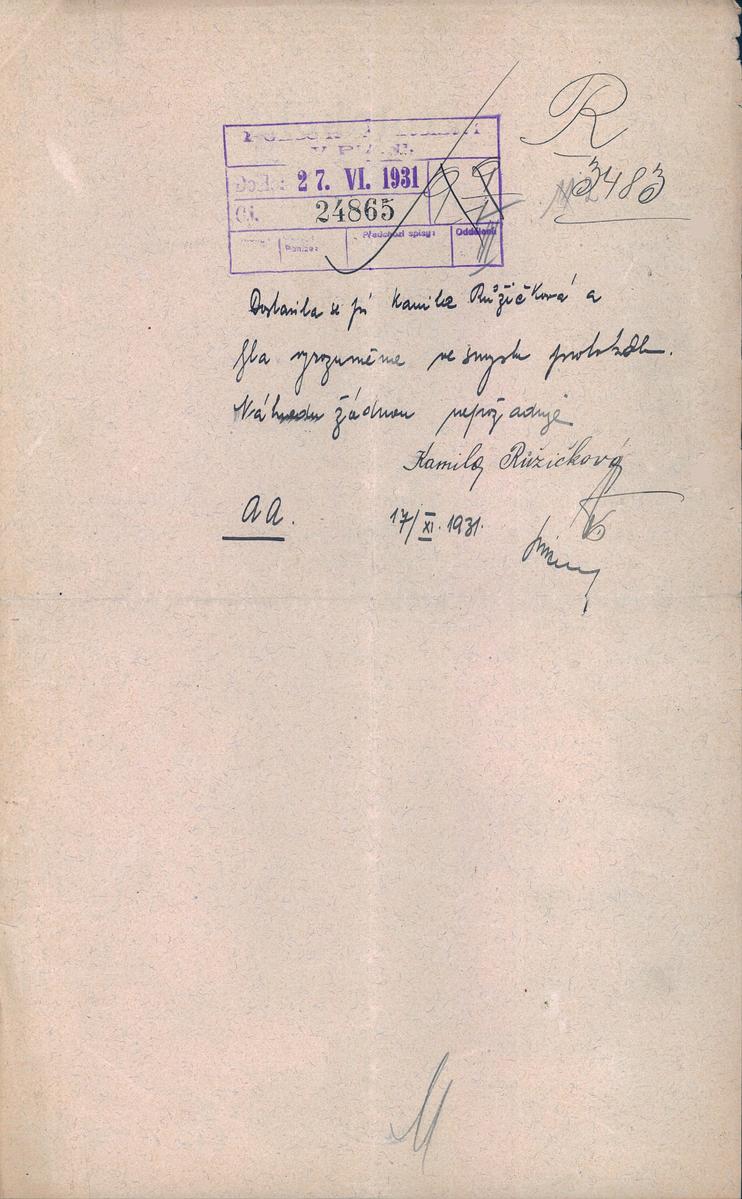 R
3483
Došlo: 27. VI. 1931
Čj. 24865
Předchozí spisy: Oddělení
Dostavila se pí Kamila Růžičková a
byla vyrozuměna ve smyslu protokolu.
Náhradu žádnou nepožaduje
Kamila Růžičková
AA. 17/XI. 1931.